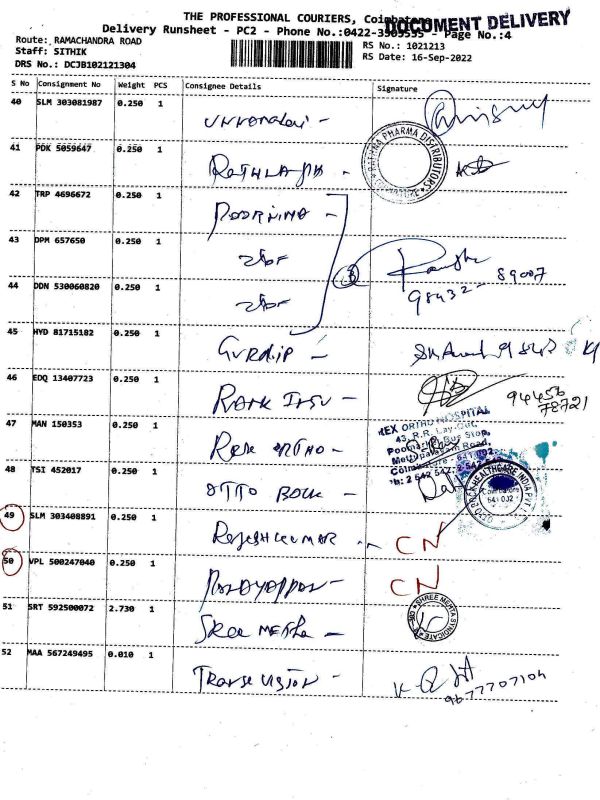 THE PROFESSIONAL COURIERS, Coimbatore
DOCUMENT DELIVERY
Delivery Runsheet - PC2 - Phone No.:0422-3505555 - Page No.:4
Route: RAMACHANDRA ROAD
RS No.: 1021213
Staff: SITHIK
RS Date: 16-Sep-2022
DRS No.: DCJB102121304
S No Consignment No Weight PCS Consignee Details Signature
40 SLM 303081987 0.250 1
41 PDK 5059647 0.250 1
RATHNA PHARMA DISTRIBUTORS
42 TRP 4696672 0.250 1 POORNIMA -
43 DPM 657650 0.250 1
3
98432- 89007
44 DDN 530060820 0.250 1
45 HYD 81715182 0.250 1 GURdip -
46 EDQ 13407723 0.250 1
94456
78721
47 MAN 150353 0.250 1 Rex ORTHO -
REX ORTHO HOSPITAL
43, R.R. Lay-Out,
Poomarket Bus Stop,
Mettupalayam Road,
Coimbatore - 641 002.
48 TSI 452017 0.250 1 OTTO BOCK -
OTTO BOCK HEALTHCARE INDIA PVT.
Coimbatore
641 002
49 SLM 303408891 0.250 1 RAJESHKUMAR - CN
50 VPL 500247040 0.250 1 CN
51 SRT 592500072 2.730 1 SREE MEHTA -
SHREE MEHTA SYNDICATE
52 MAA 567249495 0.010 1 TRANSE VISION -
9677707104